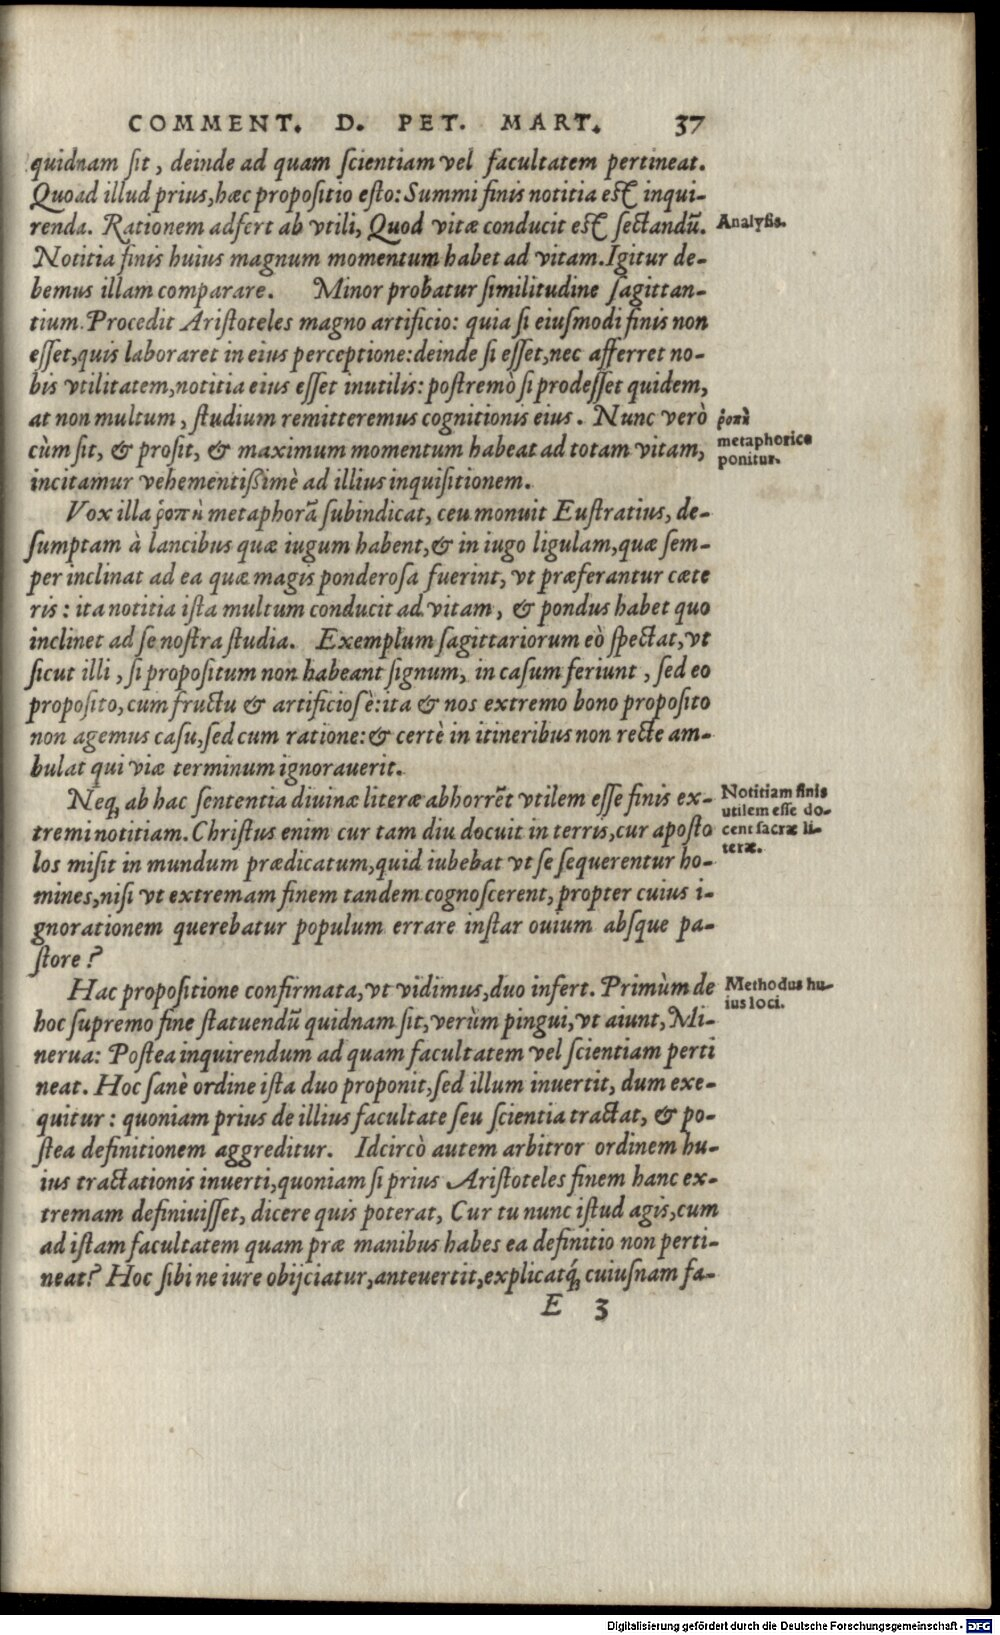 COMMENT. D. PET. MART. 37
quidnam ſit, deinde ad quam ſcientiam vel facultatem pertineat.
Quoad illud prius, hæc propoſitio eſto: Summi finis notitia eſt inqui-
renda. Rationem adfert ab vtili, Quod vitæ conducit eſt ſectandū.
Analyſis.
Notitia finis huius magnum momentum habet ad vitam. Igitur de-
bemus illam comparare. Minor probatur ſimilitudine ſagittan-
tium. Procedit Ariſtoteles magno artificio: quia ſi eiuſmodi finis non
eſſet, quis laboraret in eius perceptione: deinde ſi eſſet, nec afferret no-
bis vtilitatem, notitia eius eſſet inutilis: poſtremò ſi prodeſſet quidem,
at non multum, ſtudium remitteremus cognitionis eius. Nunc verò
cùm ſit, & proſit, & maximum momentum habeat ad totam vitam,
incitamur vehementißimè ad illius inquiſitionem.
ῥοπὴ
metaphorice
ponitur.
Vox illa ῥοπὴ metaphorā ſubindicat, ceu monuit Euſtratius, de-
ſumptam à lancibus quæ iugum habent, & in iugo ligulam, quæ ſem-
per inclinat ad ea quæ magis ponderoſa fuerint, vt præferantur cæte
ris: ita notitia iſta multum conducit ad vitam, & pondus habet quo
inclinet ad ſe noſtra ſtudia. Exemplum ſagittariorum eò ſpectat, vt
ſicut illi, ſi propoſitum non habeant ſignum, in caſum feriunt, ſed eo
propoſito, cum fructu & artificioſè: ita & nos extremo bono propoſito
non agemus caſu, ſed cum ratione: & certè in itineribus non recte am-
bulat qui viæ terminum ignorauerit.
Neq; ab hac ſententia diuinæ literæ abhorrēt vtilem eſſe finis ex-
tremi notitiam. Chriſtus enim cur tam diu docuit in terris, cur apoſto
los miſit in mundum prædicatum, quid iubebat vt ſe ſequerentur ho-
mines, niſi vt extremam finem tandem cognoſcerent, propter cuius i-
gnorationem querebatur populum errare inſtar ouium abſque pa-
ſtore?
Notitiam finis
utilem eſſe do-
cent ſacræ li-
teræ.
Hac propoſitione confirmata, vt vidimus, duo infert. Primùm de
hoc ſupremo fine ſtatuendū quidnam ſit, verùm pingui, vt aiunt, Mi-
nerua: Poſtea inquirendum ad quam facultatem vel ſcientiam perti
neat. Hoc ſanè ordine iſta duo proponit, ſed illum inuertit, dum exe-
quitur: quoniam prius de illius facultate ſeu ſcientia tractat, & po-
ſtea definitionem aggreditur. Idcircò autem arbitror ordinem hu-
ius tractationis inuerti, quoniam ſi prius Ariſtoteles finem hanc ex-
tremam definiuiſſet, dicere quis poterat, Cur tu nunc iſtud agis, cum
ad iſtam facultatem quam præ manibus habes ea definitio non perti-
neat? Hoc ſibi ne iure obijciatur, anteuertit, explicatq́; cuiuſnam fa-
Methodus hu-
ius loci.
E 3
Digitalisierung gefördert durch die Deutsche Forschungsgemeinschaft - DFG